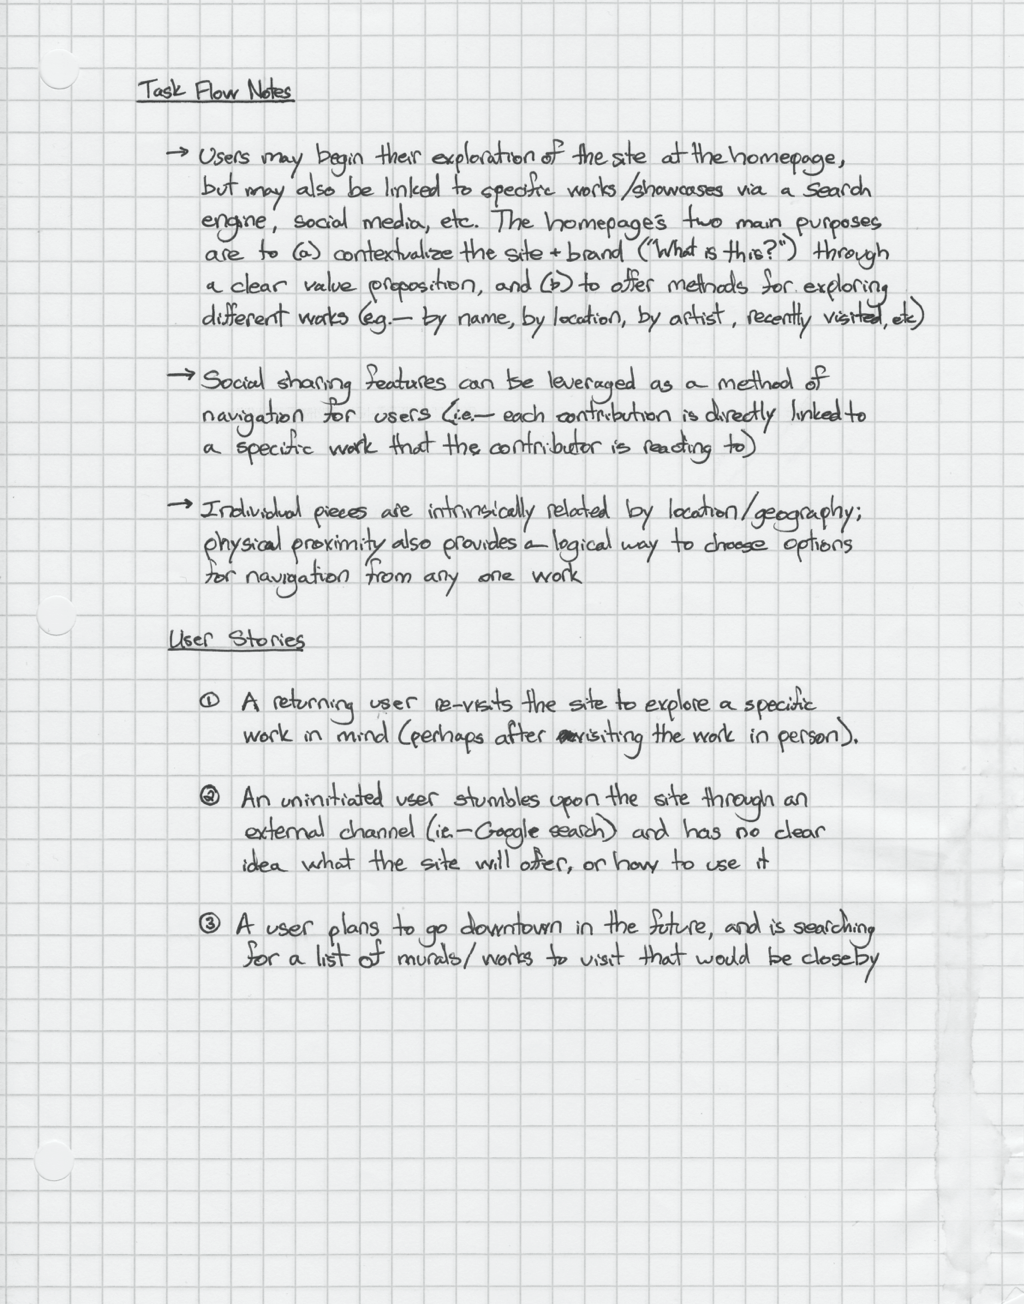 Task Flow Notes
→ Users may begin their exploration of the site at the homepage,
but may also be linked to specific works/showcases via a search
engine, social media, etc. The homepage's two main purposes
are to (a) contextualize the site + brand ("What is this?") through
a clear value proposition, and (b) to offer methods for exploring
different works (eg.— by name, by location, by artist, recently visited, etc)
→ Social sharing features can be leveraged as a method of
navigation for users (i.e.— each contribution is directly linked to
a specific work that the contributor is reacting to)
→ Individual pieces are intrinsically related by location/geography;
physical proximity also provides a logical way to choose options
for navigation from any one work
User Stories
① A returning user re-visits the site to explore a specific
work in mind (perhaps after visiting the work in person).
② An uninitiated user stumbles upon the site through an
external channel (ie.— Google search) and has no clear
idea what the site will offer, or how to use it
③ A user plans to go downtown in the future, and is searching
for a list of murals/works to visit that would be closeby